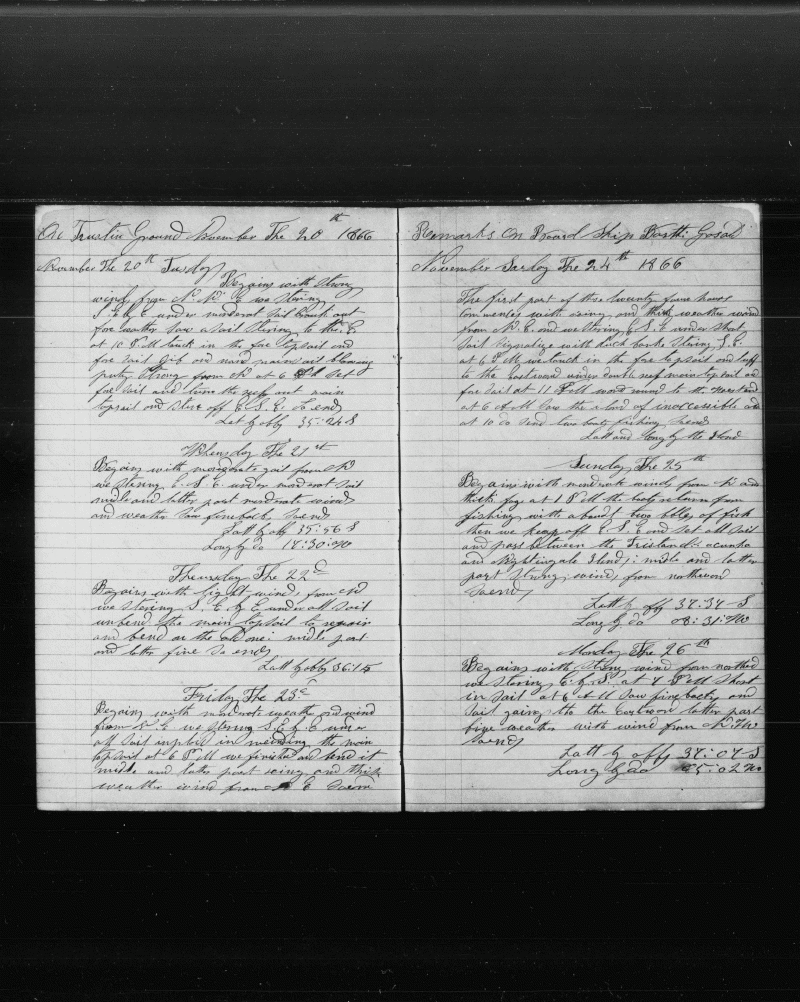 On Trustin Ground November The 20th 1866
November The 20th Tusday
Begains with Strong
winds from N. N. E we Stering
S. E by E under modorat Sail break out
for water Saw a Sail Stering to the E.
at 10 P M tuck in the fore topsail and
fore Sail Jib and main Sail blowing
puty Strong from N at 6 Set
fore Sail and turn the reef out main
topsail and Stere off E. S. E. So ends
Lat by obs 35:24 S
Whensday The 21st
Begains with modorate gail from N
we Stering E. S. E under modorat Sail
midle and latter part moderate wind
and weather Saw finebacks Soends
Latt by obs 35:56 S
Long by do 18:30 W
Theursday The 22d
Begains with light winds from N
we Stering S. E by E under all Sail
unbend the main topsail to repair
and bend on the old one: midle part
and latter fine So ends
Latt by obbs 36:15
Friday The 23d
Begains with moderate weath and wind
from N E we Stering S E by E under
all Sail imploid in mending the main
topsail at 6 P M we finised and bend it
midle and latter part rainy and thick
weather wind from N E Soends
Remarks On Board Ship Barth. Gosold
November Sarday The 24th 1866
The first part of these twenty foure hours
Commences with rainy and thick weather wind
from N. E. and we Stering E. S. E under Short
Sail Stering S. E.
at 6 P. M. we tuck in the fore topsail and luff
to the Eastward under duble reef main topsail and
fore Sail at 11 P M wore round to the
at 6 A M Saw the iland of inaccessible and
at 10 do Send two boats fishing Soends
Latt and Long by the iland
Sunday The 25th
Begains with moderate winds from N and
thick fogs at 1 P M the boats return from
fishing with about two bbles of fish
then we keep off E S E and Set all Sail
and pass between the Tristand acunha
and Nightingale Ilands: midle and latter
part Strong winds from northerd
Soends
Latt by obbs 37:37 S
Long by do 08:31 W
Monday The 26th
Begains with Strong wind from northerd
we Stering E. by S. at 7 P M Short
in Sail at 6 A M Saw finebacks and
Sail going to the Eastward latter part
fine weather with wind from N. W
Soends
Latt by obbs 37:07 S
Long by do 05:02 W